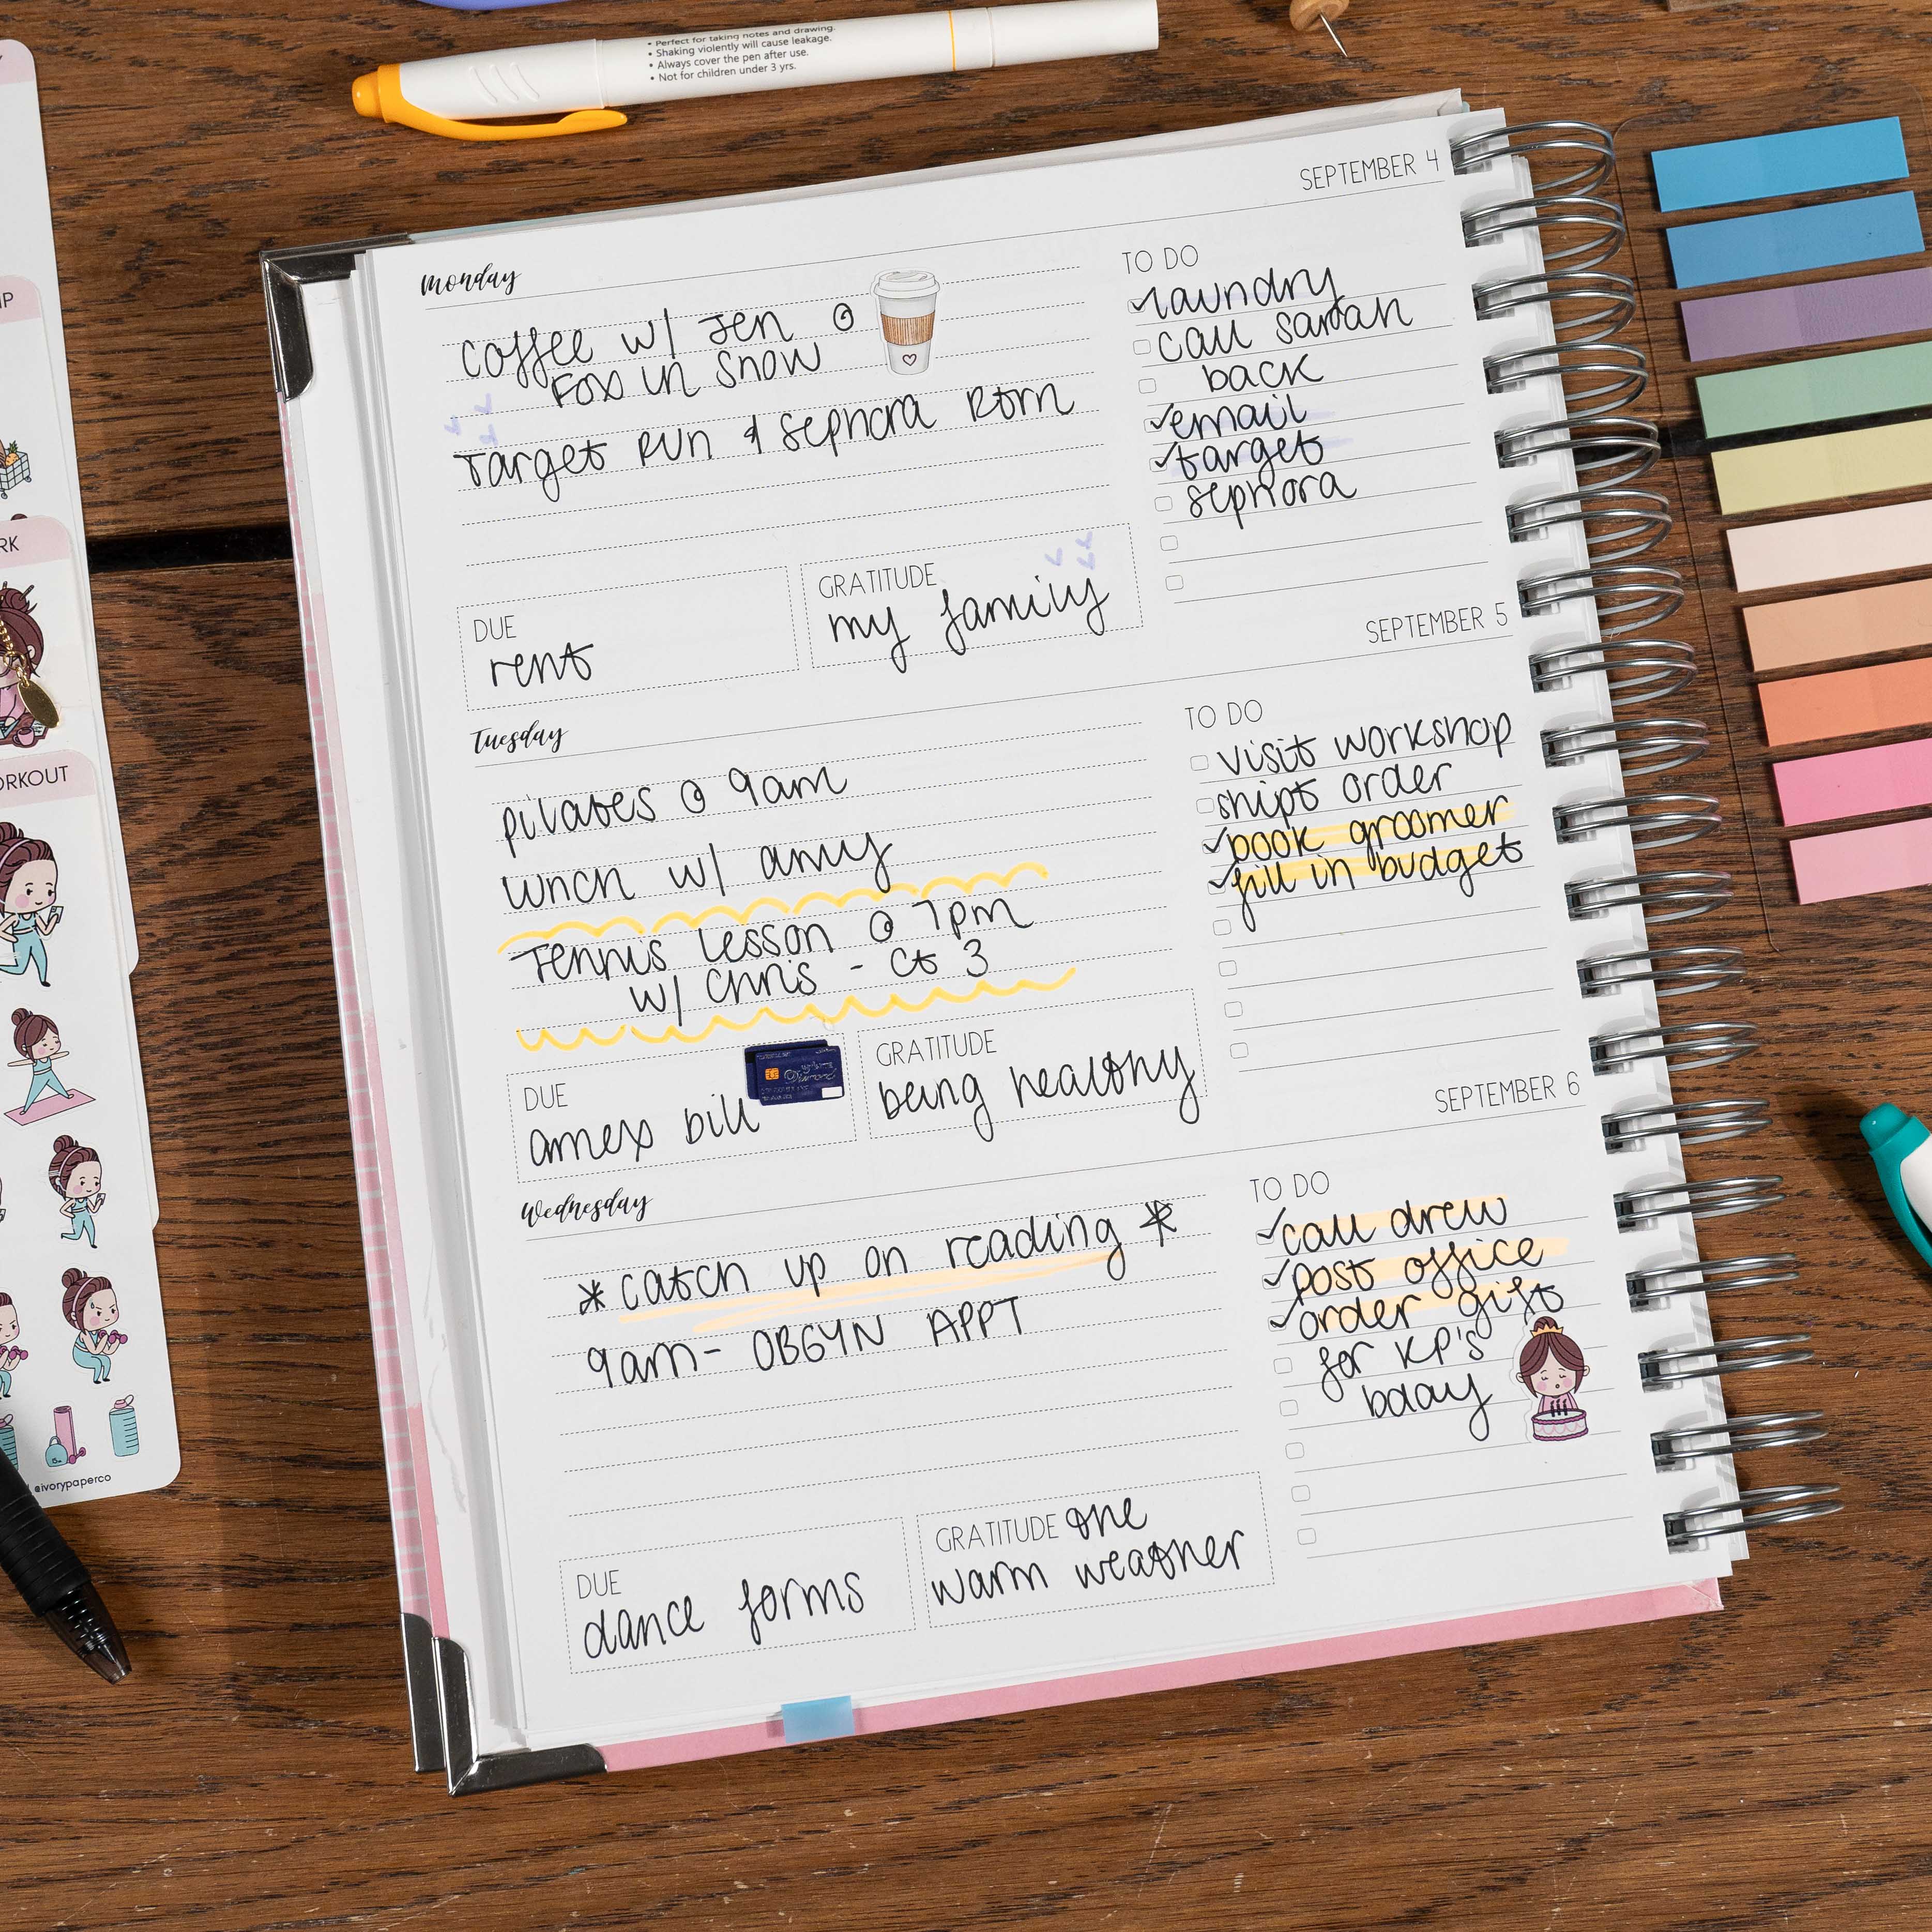 • Perfect for taking notes and drawing.
• Shaking violently will cause leakage.
• Always cover the pen after use.
• Not for children under 3 yrs.
SEPTEMBER 4
Monday
coffee w/ Jen @
Fox in Snow
Target Run & Sephora Rtrn
DUE
rent
GRATITUDE
my family
TO DO
laundry
call sarah
back
email
target
sephora
SEPTEMBER 5
Tuesday
pilates @ 9am
lunch w/ amy
Tennis Lesson @ 7pm
w/ Chris - Ct 3
DUE
amex bill
GRATITUDE
being healthy
TO DO
visit workshop
ship order
book groomer
fill in budget
SEPTEMBER 6
Wednesday
* catch up on reading *
9am- OBGYN APPT
DUE
dance forms
GRATITUDE the
warm weather
TO DO
call drew
post office
order gift
for KP's
bday
IP
RK
ORKOUT
@ivorypaperco